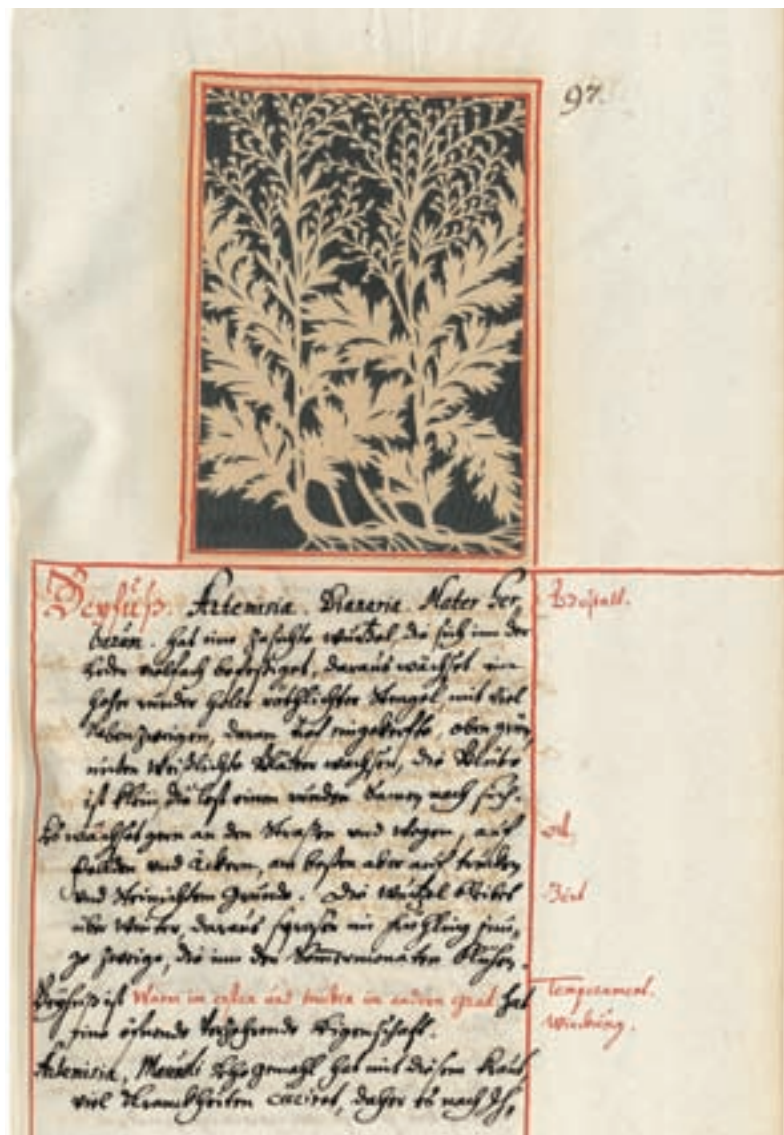 97.
Beyfuß. Artemisia. Dianaria. Mater Her-
barum. Hat eine Wurtzel, die sich inn der
Erden vielfach befestiget, daraus wächset ein
hoher runder holer röthlichter Stengel, mit viel
Nebenzweigen, daran tief eingekerfte, oben grün,
unten weißlichte Blätter wachsen, die Blüte
ist klein, die lest einen runden Samen nach sich.
Gestalt.
Es wächset gern an den Straßen und Wegen, auf
und Äckern, am besten aber auf truknen
und steinichten Grunde. Die Wurtzel bleibet
über Winter, daraus im Frühling jun-
ge Zweige, die inn den Sommermonaten blühen.
Ort.
Zeit
Beyfuß ist Warm im ersten und truken im andern grad. hat
eine öfnende Eigenschaft.
Temperament.
Würckung.
Artemisia, Mausoli Ehegemahl hat mit diesem Kraut
viel Kranckheiten curiret, daher es nach Ih-